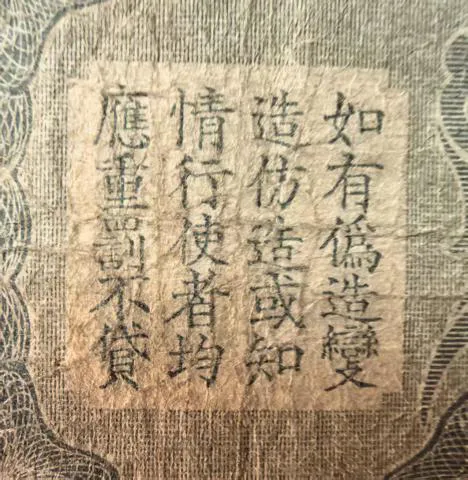 如有偽造變
造仿造或知
情行使者均
應重罰不貸